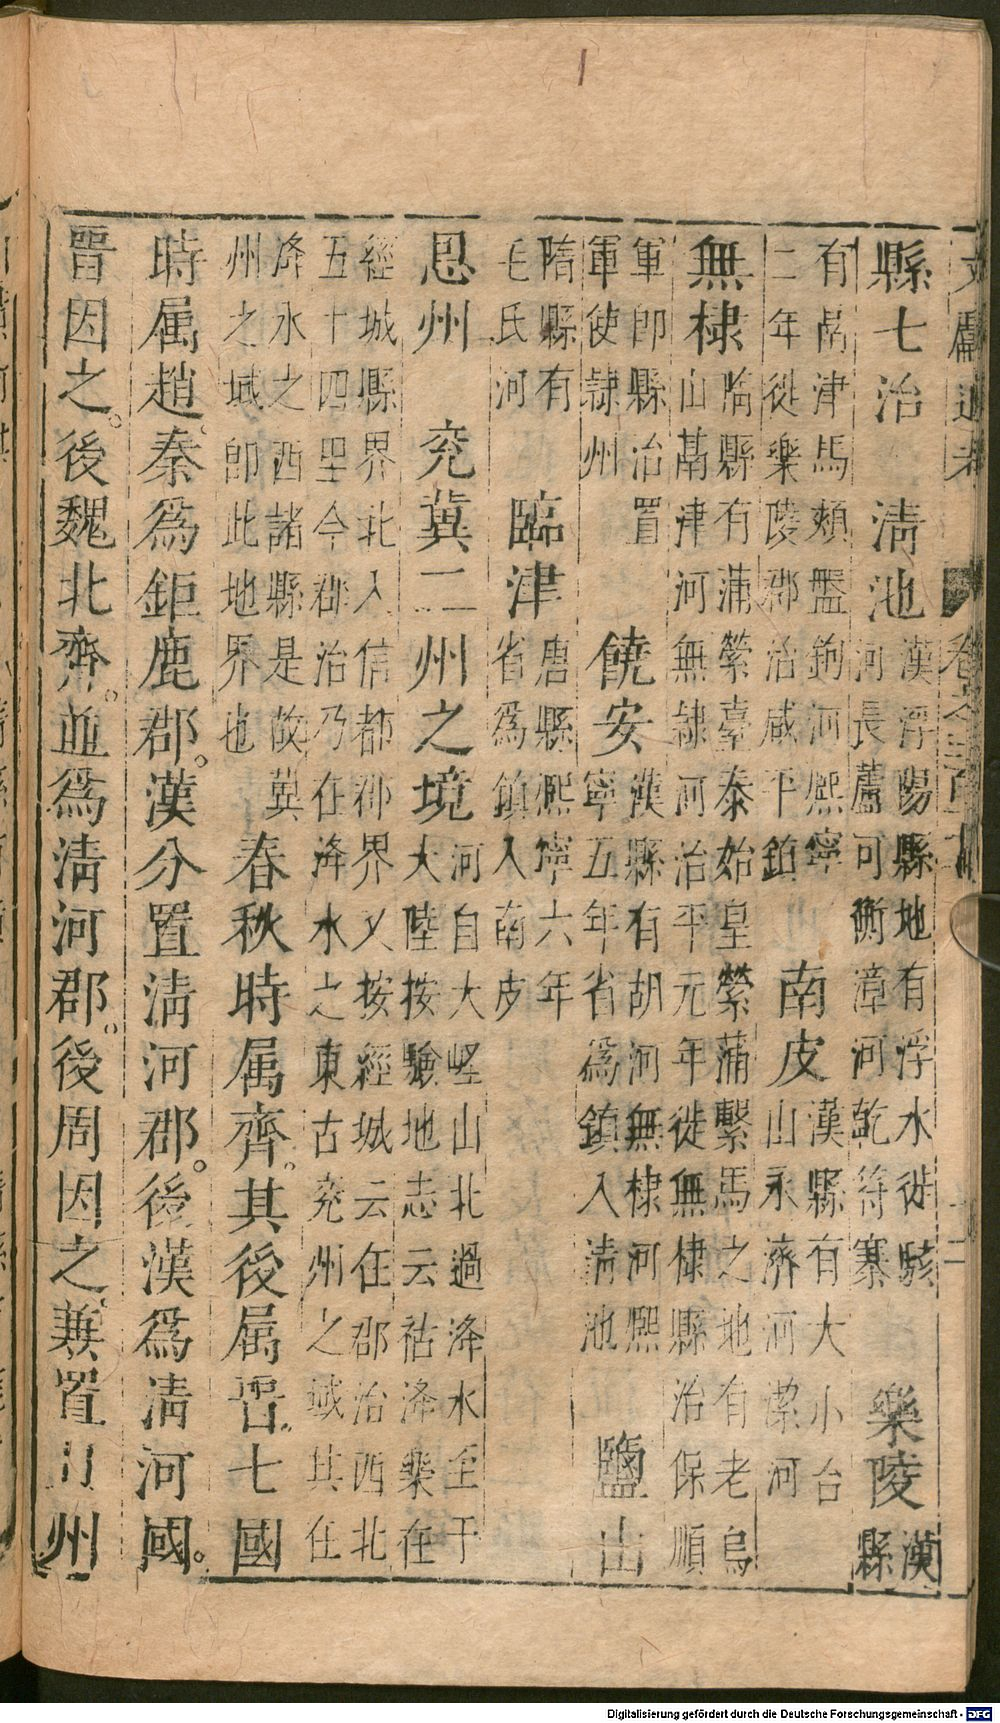 文獻通考
縣七治　清池
漢浮陽縣地有浮水徙駭
河長蘆河衡漳河乾符寨
樂陵
漢
縣
有鬲津馬頰盤鉤河熙寧
二年徙樂陵郡治咸平鎮
南皮
漢縣有大小台
山永濟河潔河
無棣
臨縣有蒲縈臺泰始皇縈蒲繫馬之地有老烏
山鬲津河無隸河治平元年徙無棣縣治保順
軍即縣治置
軍使隸州
饒安
漢縣有胡河無棣河熙
寧五年省為鎮入清池
鹽山
隋縣有
毛氏河
臨津
唐縣熈寧六年
省爲鎮入南皮
恩州　兗冀二州之境
河自大岯山北過洚水至于
大陸按驗地志云祜洚渠在
經城縣界北入信都郡界又按經城云在郡治西北
五十四里今郡治乃在洚水之東古兗州之域其在
洚水之西諸縣是故冀
州之域即此地界也
春秋時属齊。其後属晋。七國
時属趙。秦爲鉅鹿郡。漢分置清河郡。後漢爲清河國。
晋因之。後魏北齊。並爲清河郡。後周因之。兼置州
Digitalisierung gefördert durch die Deutsche Forschungsgemeinschaft - DFG